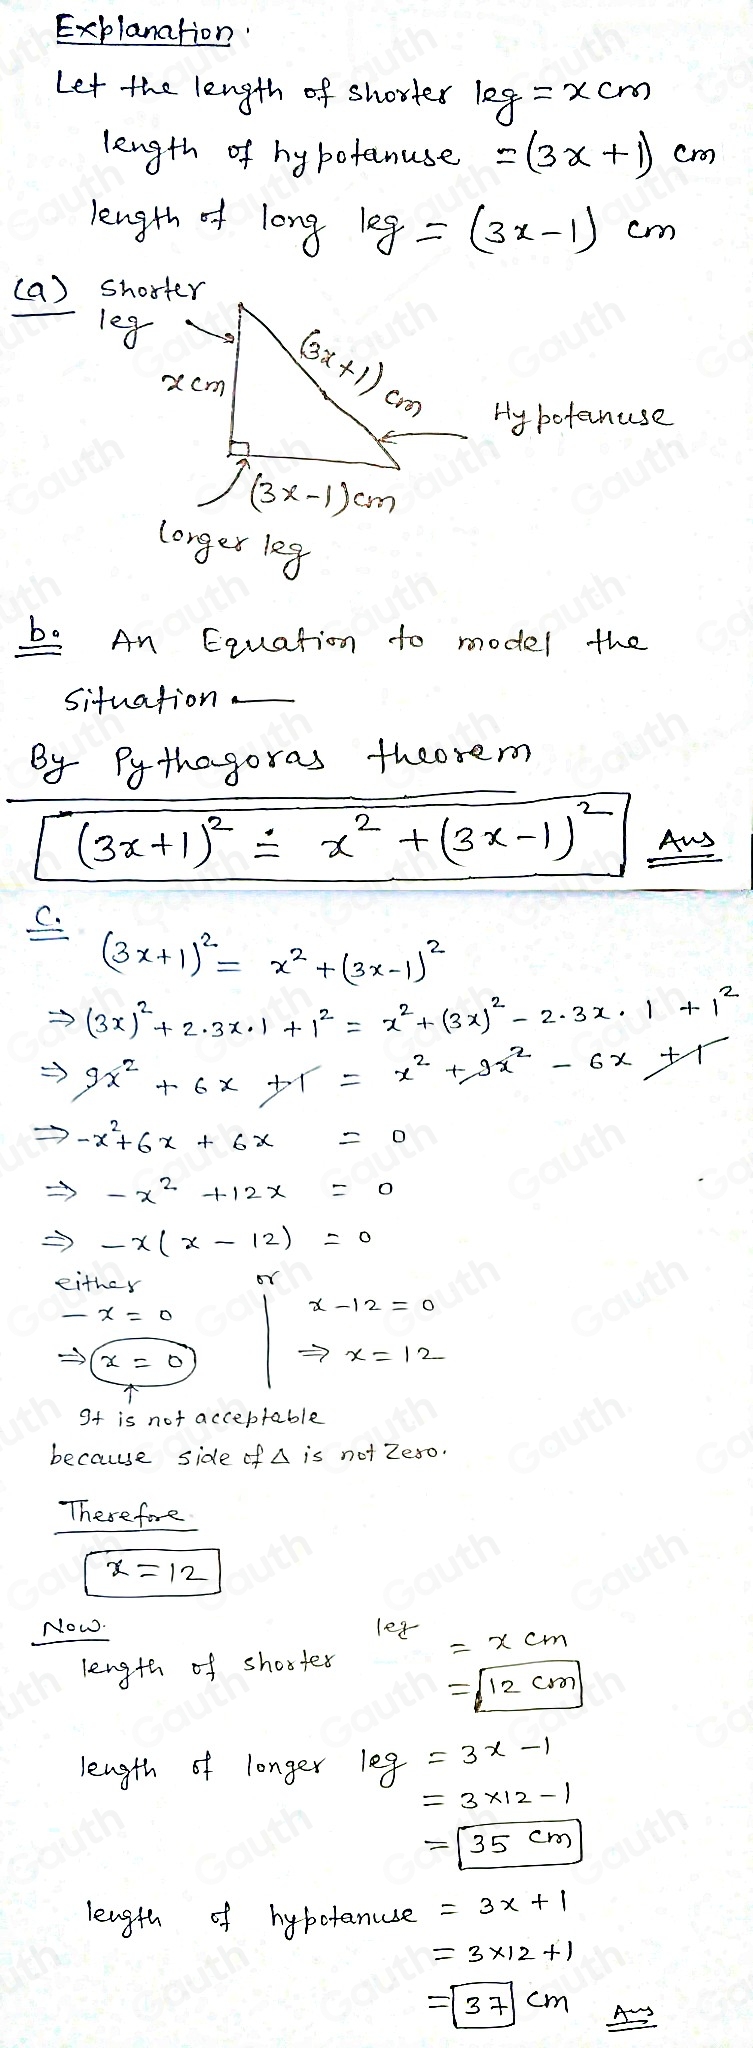 Explanation.
Let the length of shorter leg = x cm
length of hypotanuse = (3x+1) cm
length of long leg = (3x-1) cm
(a) Shorter leg
x cm
(3x+1) cm
Hypotanuse
(3x-1) cm
longer leg
b. An Equation to model the
situation —
By Pythagoras theorem
(3x+1)² = x² + (3x-1)² Ans
C.
(3x+1)² = x² + (3x-1)²
⇒ (3x)² + 2·3x·1 + 1² = x² + (3x)² - 2·3x·1 + 1²
⇒ 9x² + 6x + 1 = x² + 9x² - 6x + 1
⇒ -x² + 6x + 6x = 0
⇒ -x² + 12x = 0
⇒ -x(x - 12) = 0
either or
-x = 0 | x - 12 = 0
⇒ x = 0 | ⇒ x = 12
It is not acceptable
because side of Δ is not Zero.
Therefore
x = 12
Now.
length of shorter leg = x cm
= 12 cm
length of longer leg = 3x - 1
= 3×12 - 1
= 35 cm
length of hypotanuse = 3x + 1
= 3×12 + 1
= 37 cm Ans